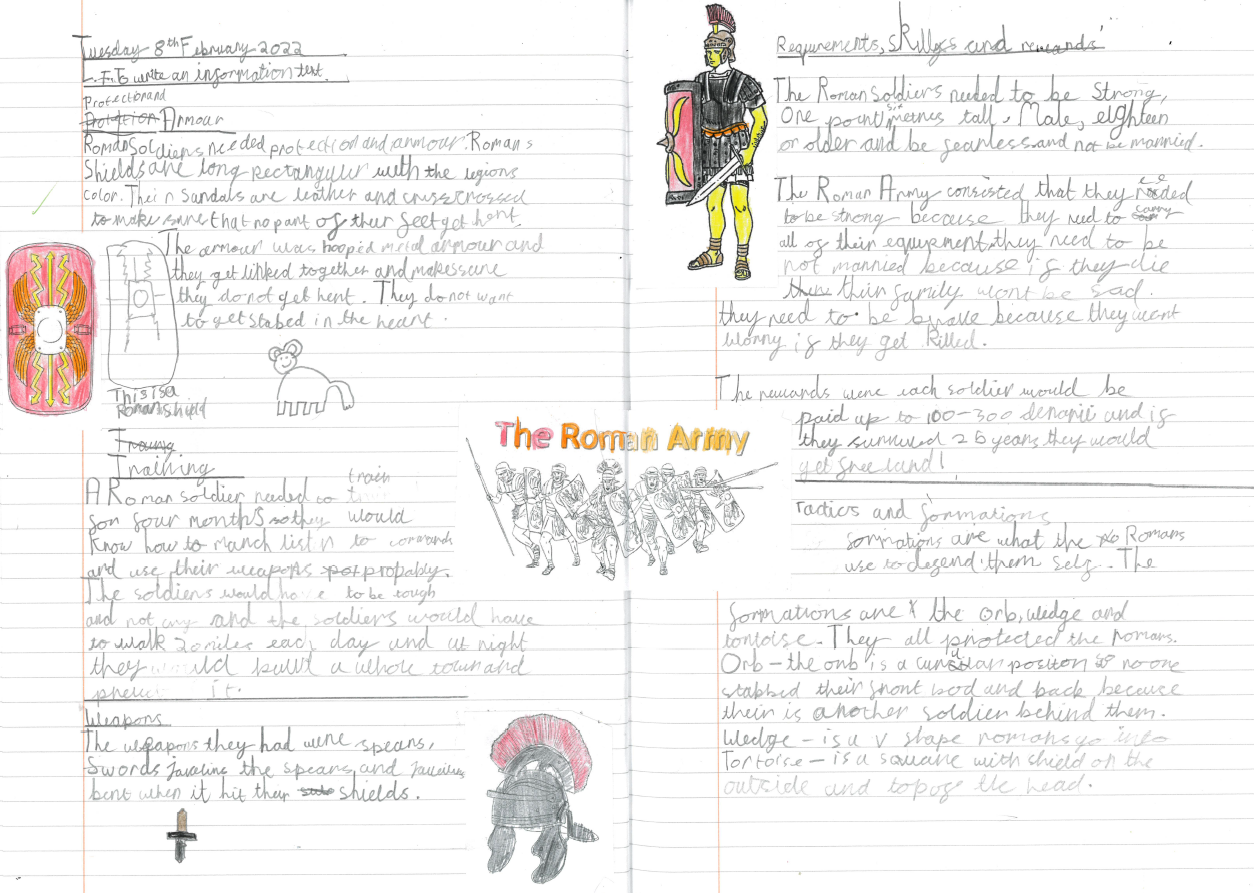 Tuesday 8th February 2022
L.F. To write an information text.
Protection and
Armour
Roman Soldiers needed protection and armour. Romans
Shields are long rectangulur with the legions
color. Their Sandals are leather and crisscrossed
to make sure that no part of their feet get hert.
The armour was hooped metal armour and
they get linked together and makes sure
they do not get hert. They do not want
to get stabed in the heart.
This is a
Roman shield
Training
Training
train
A Roman soldier needed to
for four months so they would
know how to march listn to comands
and use their weapons propably.
The soldiers would have to be tough
and not cry and the soldiers would have
to walk 20 miles each day and at night
they would built a whole town and
it.
Weapons
The weapons they had were spears,
Swords javelins the spears and
bent when it hit their shields.
The Roman Army
Requrements, skillss and rewards
The Roman Soldiers needed to be Strong,
One point six metres tall, Male, eighteen
or older and be fearless and not be married.
The Roman Army consisted that they needed
to be strong because they need to carry
all of their equipment, they need to be
not married because if they die
their family wont be sad.
they need to be brave because they want
worry if they get killed.
The rewards were each soldier would be
paid up to 100-300 denarii and if
they survived 26 years they would
get free land!
Tactics and formations
formations are what the Romans
use to defend them self. The
formations are the orb, wedge and
tortoise. They all protected the romans.
Orb - the orb is a position no one
stabbed their front and back because
their is another soldier behind them.
Wedge - is a v shape romans go into
Tortoise - is a square with shield on the
outside and top of the head.